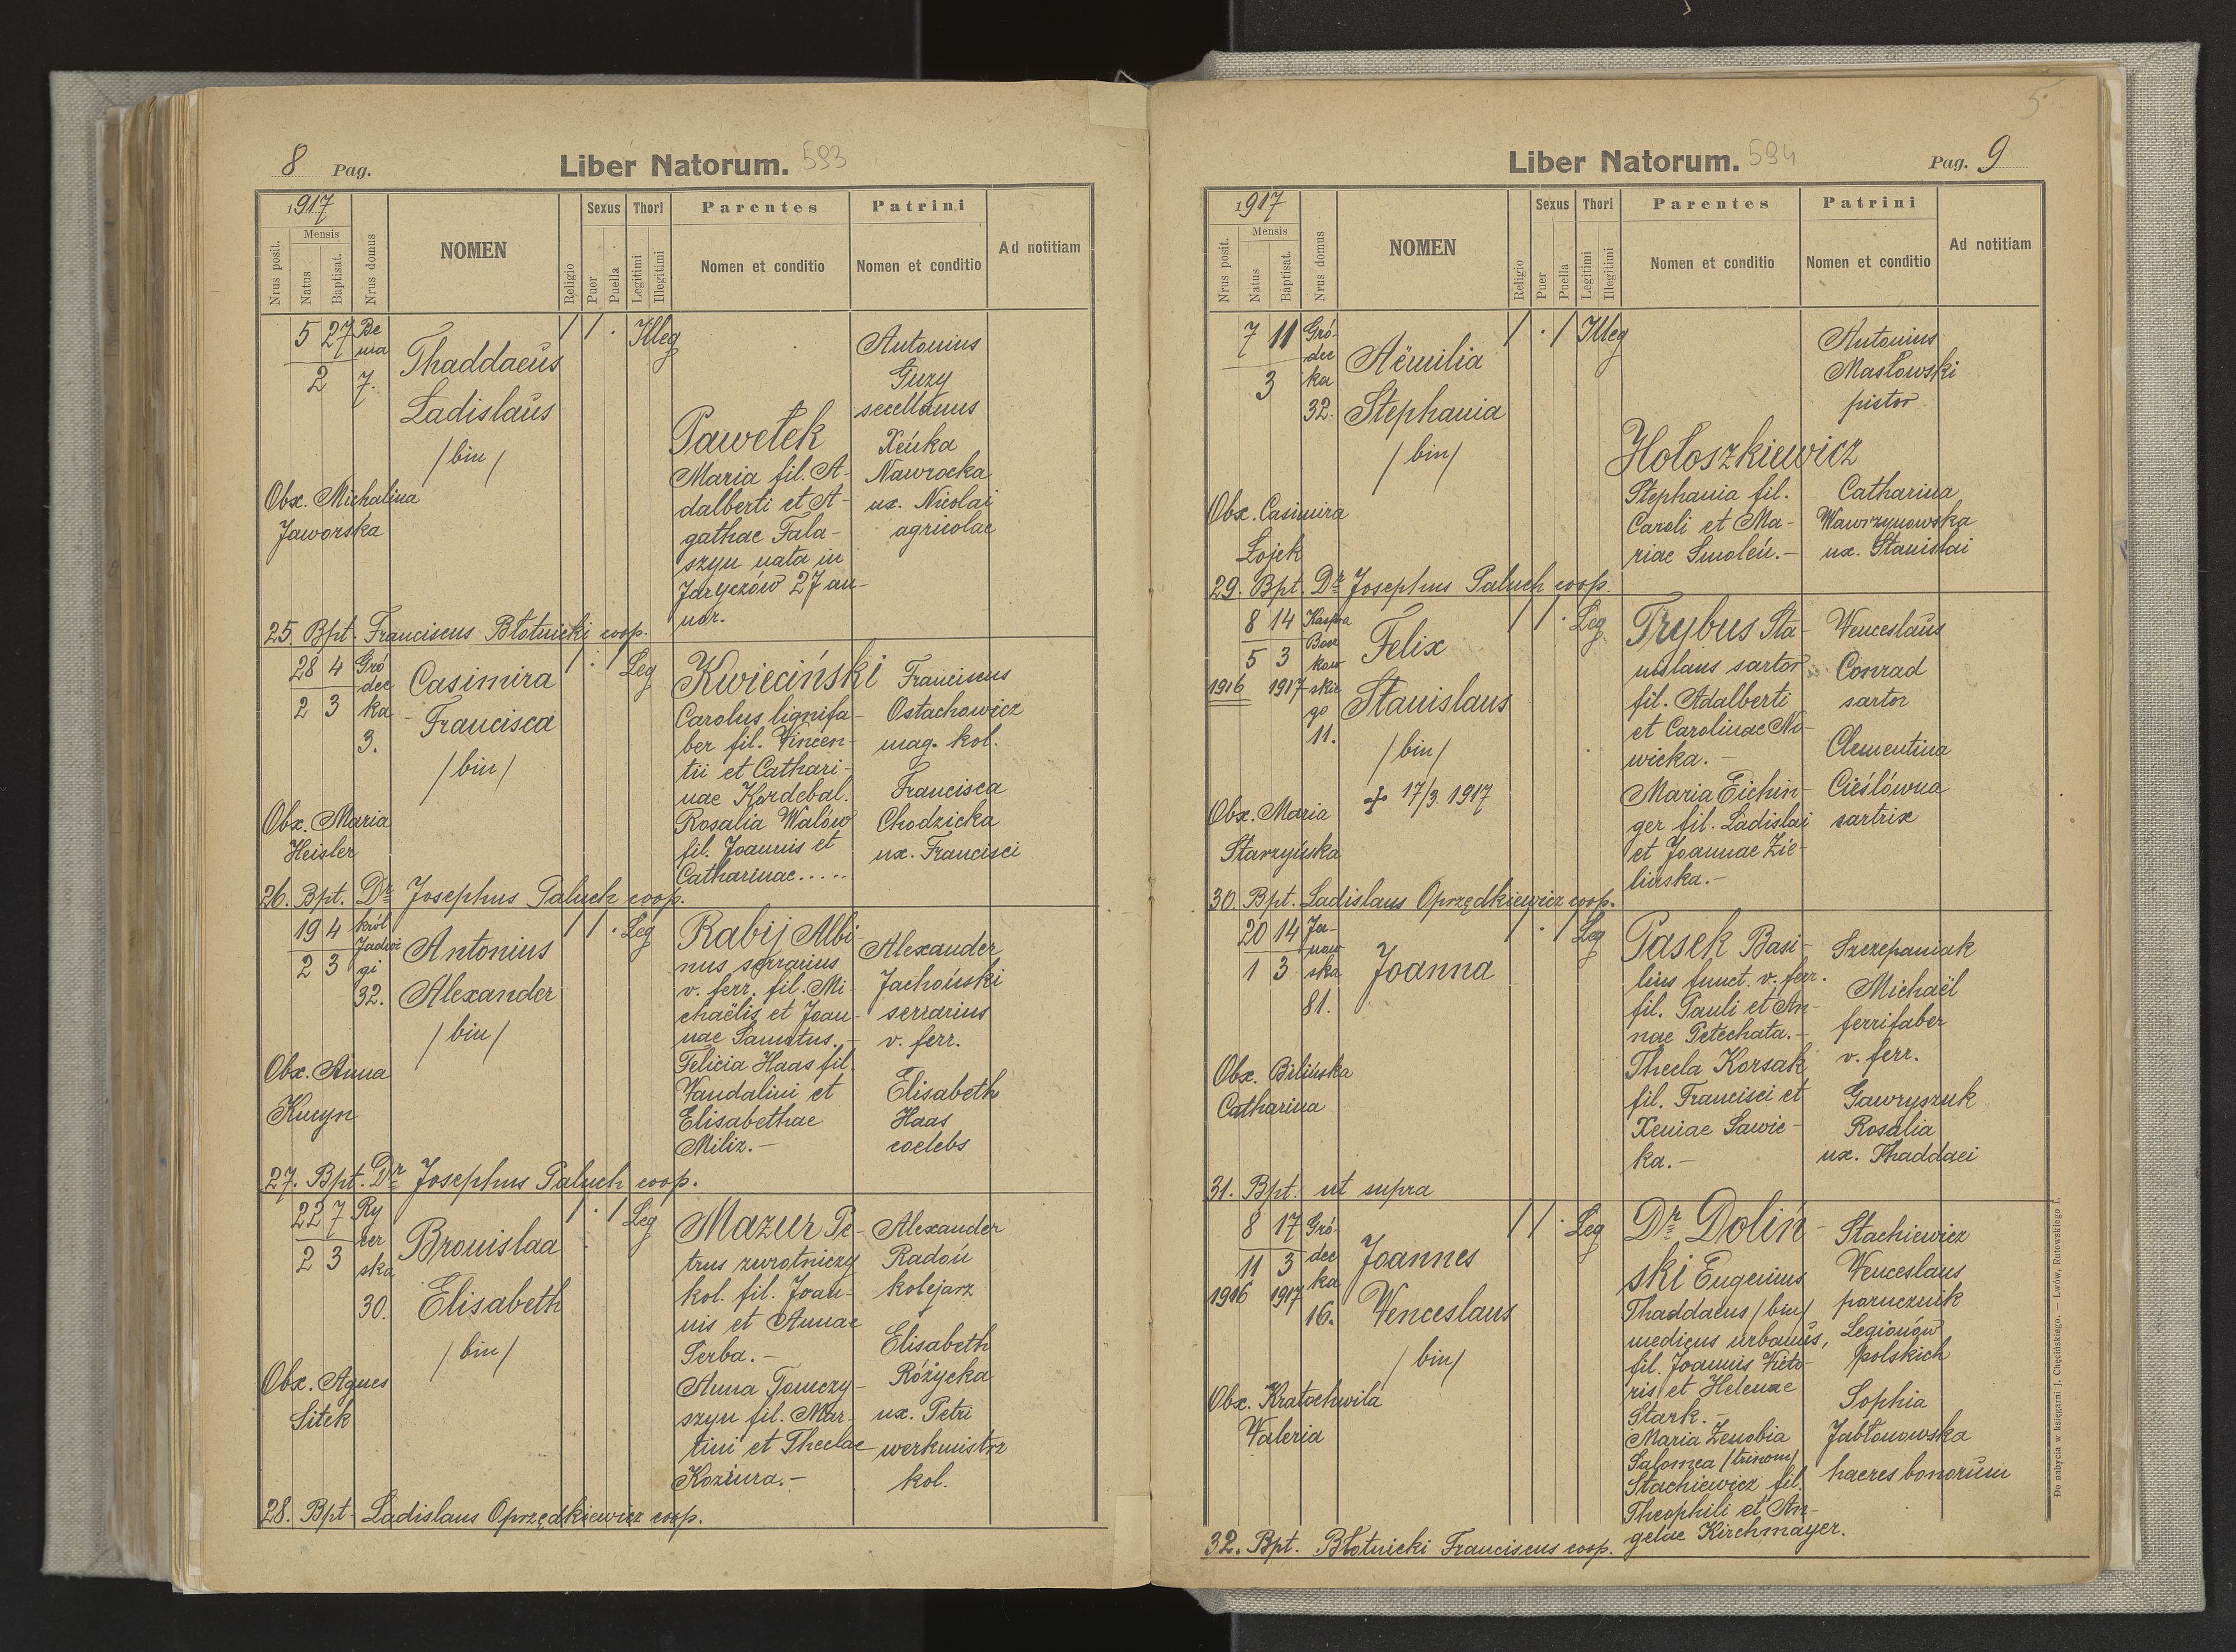 8 Pag.
Liber Natorum. 593
1917
Mensis
Nrus posit.
Natus
Baptisat.
Nrus domus
NOMEN
Religio
Sexus
Puer
Puella
Thori
Legitimi
Illegitimi
Parentes
Nomen et conditio
Patrini
Nomen et conditio
Ad notitiam
5 27 Be
ma
2 7.
Thaddaeus
Ladislaus
/bin/
/ / . Illeg
Obx. Michalina
Jaworska
Pawełek
Maria fil. A-
dalberti et A-
gathae Fala-
szyn nata in
Jaryczów 27 an-
nor.
Antonius
Guzy
sacellanus
Xeńka
Nawrocka
ux. Nicolai
agricolae
25. Bpt. Franciscus Błotnicki coop.
28 4 Gró
dec
2 3 ka
3.
Casimira
Francisca
/bin/
/ . / Leg
Obx. Maria
Heisler
Kwieciński
Carolus lignifa-
ber fil. Vincen-
tii et Cathari-
nae Kordebal.
Rosalia Walów
fil. Joannis et
Catharinae.....
Franciscus
Ostachowicz
mag. kol.
Francisca
Chodzicka
ux. Francisci
26. Bpt. Dr Josephus Paluch coop.
19 4 król
Jadwi
2 3 gi
32.
Antonius
Alexander
/bin/
/ / . Leg
Obx. Anna
Kucyn
Rabij Albi-
nus serrarius
v. ferr. fil. Mi-
chaëlis et Joan-
nae Samutus.-
Felicia Haas fil.
Wandalini et
Elisabethae
Miliz.-
Alexander
Jachoński
serrarius
v. ferr.
Elisabeth
Haas
coelebs
27. Bpt. Dr Josephus Paluch coop.
22 7 Ry
cer
2 3 ska
30.
Bronislaa
Elisabeth
/bin/
/ . / Leg
Obx. Agnes
Sitek
Mazur Pe-
trus zwrotniczy
kol. fil. Joan-
nis et Annae
Serba.-
Anna Tomczy-
szyn fil. Mar-
tini et Theclae
Koziura.-
Alexander
Radoń
kolejarz
Elisabeth
Różycka
ux. Petri
werkmistrz
kol.
28. Bpt. Ladislaus Oprzędkiewicz coop.
5
Liber Natorum. 594
Pag. 9
1917
Mensis
Nrus posit.
Natus
Baptisat.
Nrus domus
NOMEN
Religio
Sexus
Puer
Puella
Thori
Legitimi
Illegitimi
Parentes
Nomen et conditio
Patrini
Nomen et conditio
Ad notitiam
7 11 Gró-
dec
3 ka
32.
Aëmilia
Stephania
/bin/
/ . / Illeg
Obx. Casimira
Łojek
Hołoszkiewicz
Stephania fil.
Caroli et Ma-
riae Smoleń.-
Antonius
Masłowski
pistor
Catharina
Wawrzynowska
ux. Stanislai
29. Bpt. Dr Josephus Paluch coop.
8 14 Kaspra
Bocz
5 3 kow
1916 1917 skie
go
11.
Felix
Stanislaus
/bin/
+ 17/3 1917
/ / . Leg
Obx. Maria
Starzyńska
Trybus Sta-
nislaus sartor
fil. Adalberti
et Carolinae No-
wicka.-
Maria Eichin-
ger fil. Ladislai
et Joannae Zie-
lińska.-
Wenceslaus
Conrad
sartor
Clementina
Cieślówna
sartrix
30. Bpt. Ladislaus Oprzędkiewicz coop.
20 14 Ja-
now
1 3 ska
81.
Joanna
/ . / Leg
Obx. Bilińska
Catharina
Pasek Basi-
lius funct. v. ferr.
fil. Pauli et An-
nae Petechata.-
Thecla Korsak
fil. Francisci et
Xeniae Sawic-
ka.-
Szczepaniak
Michaël
ferrifaber
v. ferr.
Gawryszuk
Rosalia
ux. Thaddaei
31. Bpt. ut supra
8 17 Gró-
dec
11 3 ka
1916 1917 16.
Joannes
Wenceslaus
/bin/
/ / . Leg
Obx. Kratochwila
Waleria
Dr Doliń-
ski Eugenius
Thaddaeus /bin/
medicus urbanus,
fil. Joannis Victo-
ris et Helenae
Stark.-
Maria Zenobia
Salomea /trinom/
Stachiewicz fil.
Theophili et An-
gelae Kirchmayer.
Stachiewicz
Wenceslaus
porucznik
Legionów
polskich
Sophia
Jabłonowska
haeres bonorum
32. Bpt. Błotnicki Franciscus coop.
Do nabycia w księgarni J. Chęcińskiego. — Lwów, Rutowskiego 1.